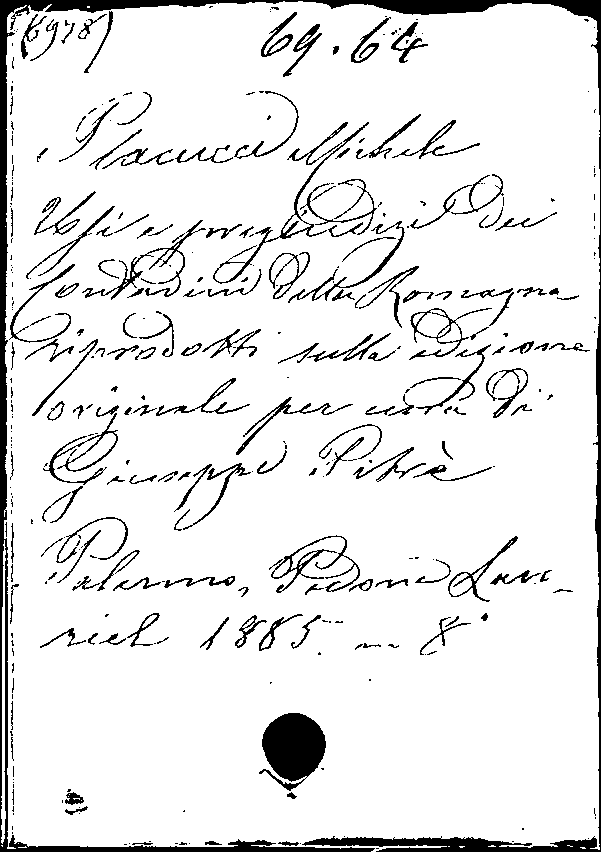 (6978)
69.64
Placucci Michele
Usi e pregiudizi dei
Contadini della Romagna
riprodotti sulla edizione
originale per cura di
Giuseppe Pitrè
Palermo, Pedone Lau-
riel 1885 — 8°